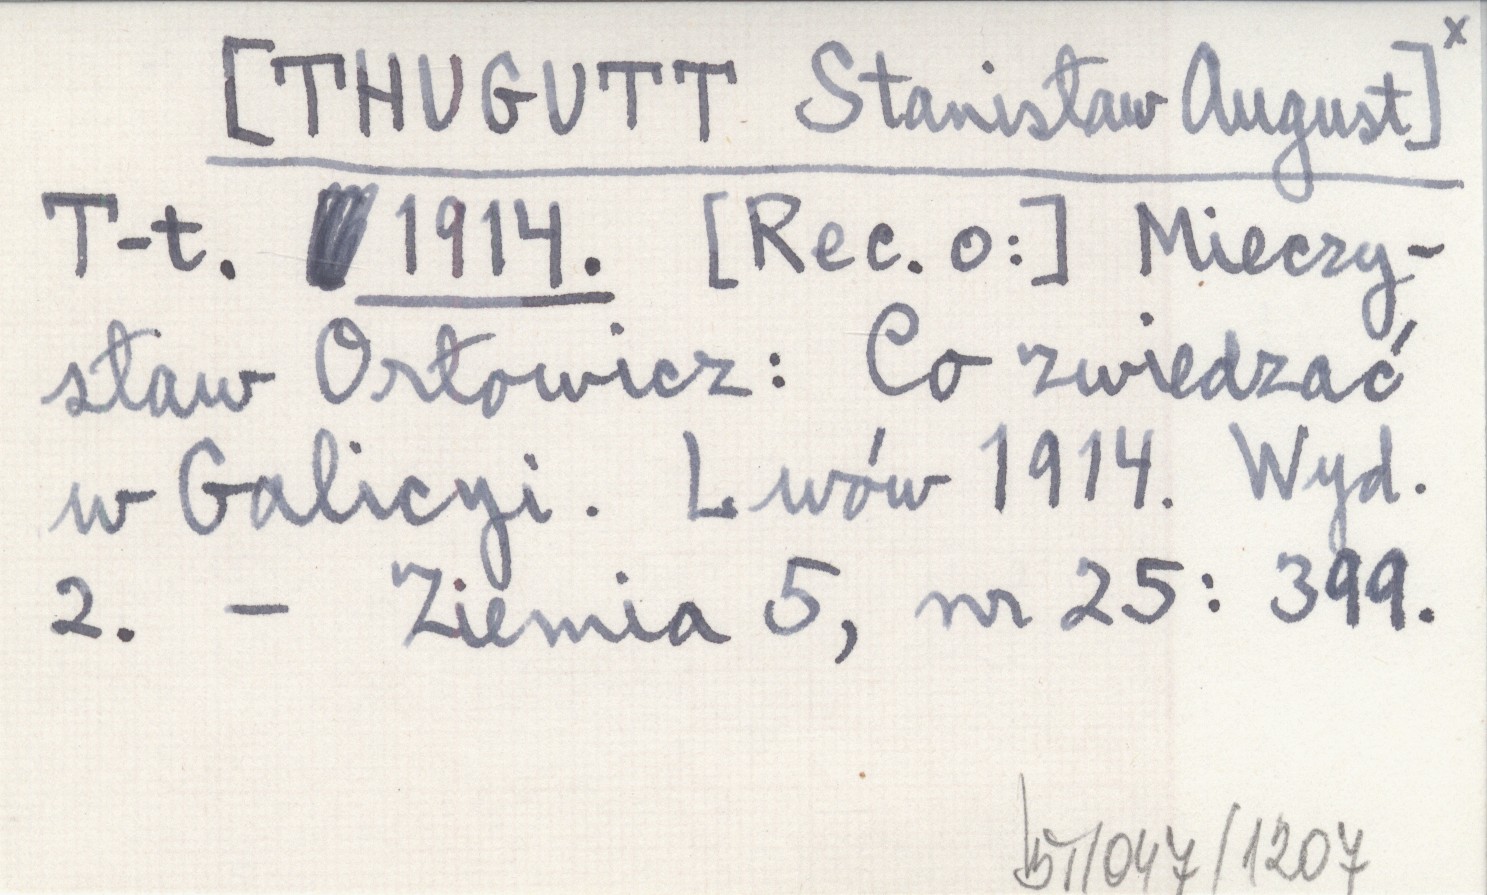 [THUGUTT Stanisław August]x
T-t. 1914. [Rec. o:] Mieczy-
sław Orłowicz: Co zwiedzać
w Galicyi. Lwów 1914. Wyd.
2. – Ziemia 5, nr 25: 399.
/047/1207